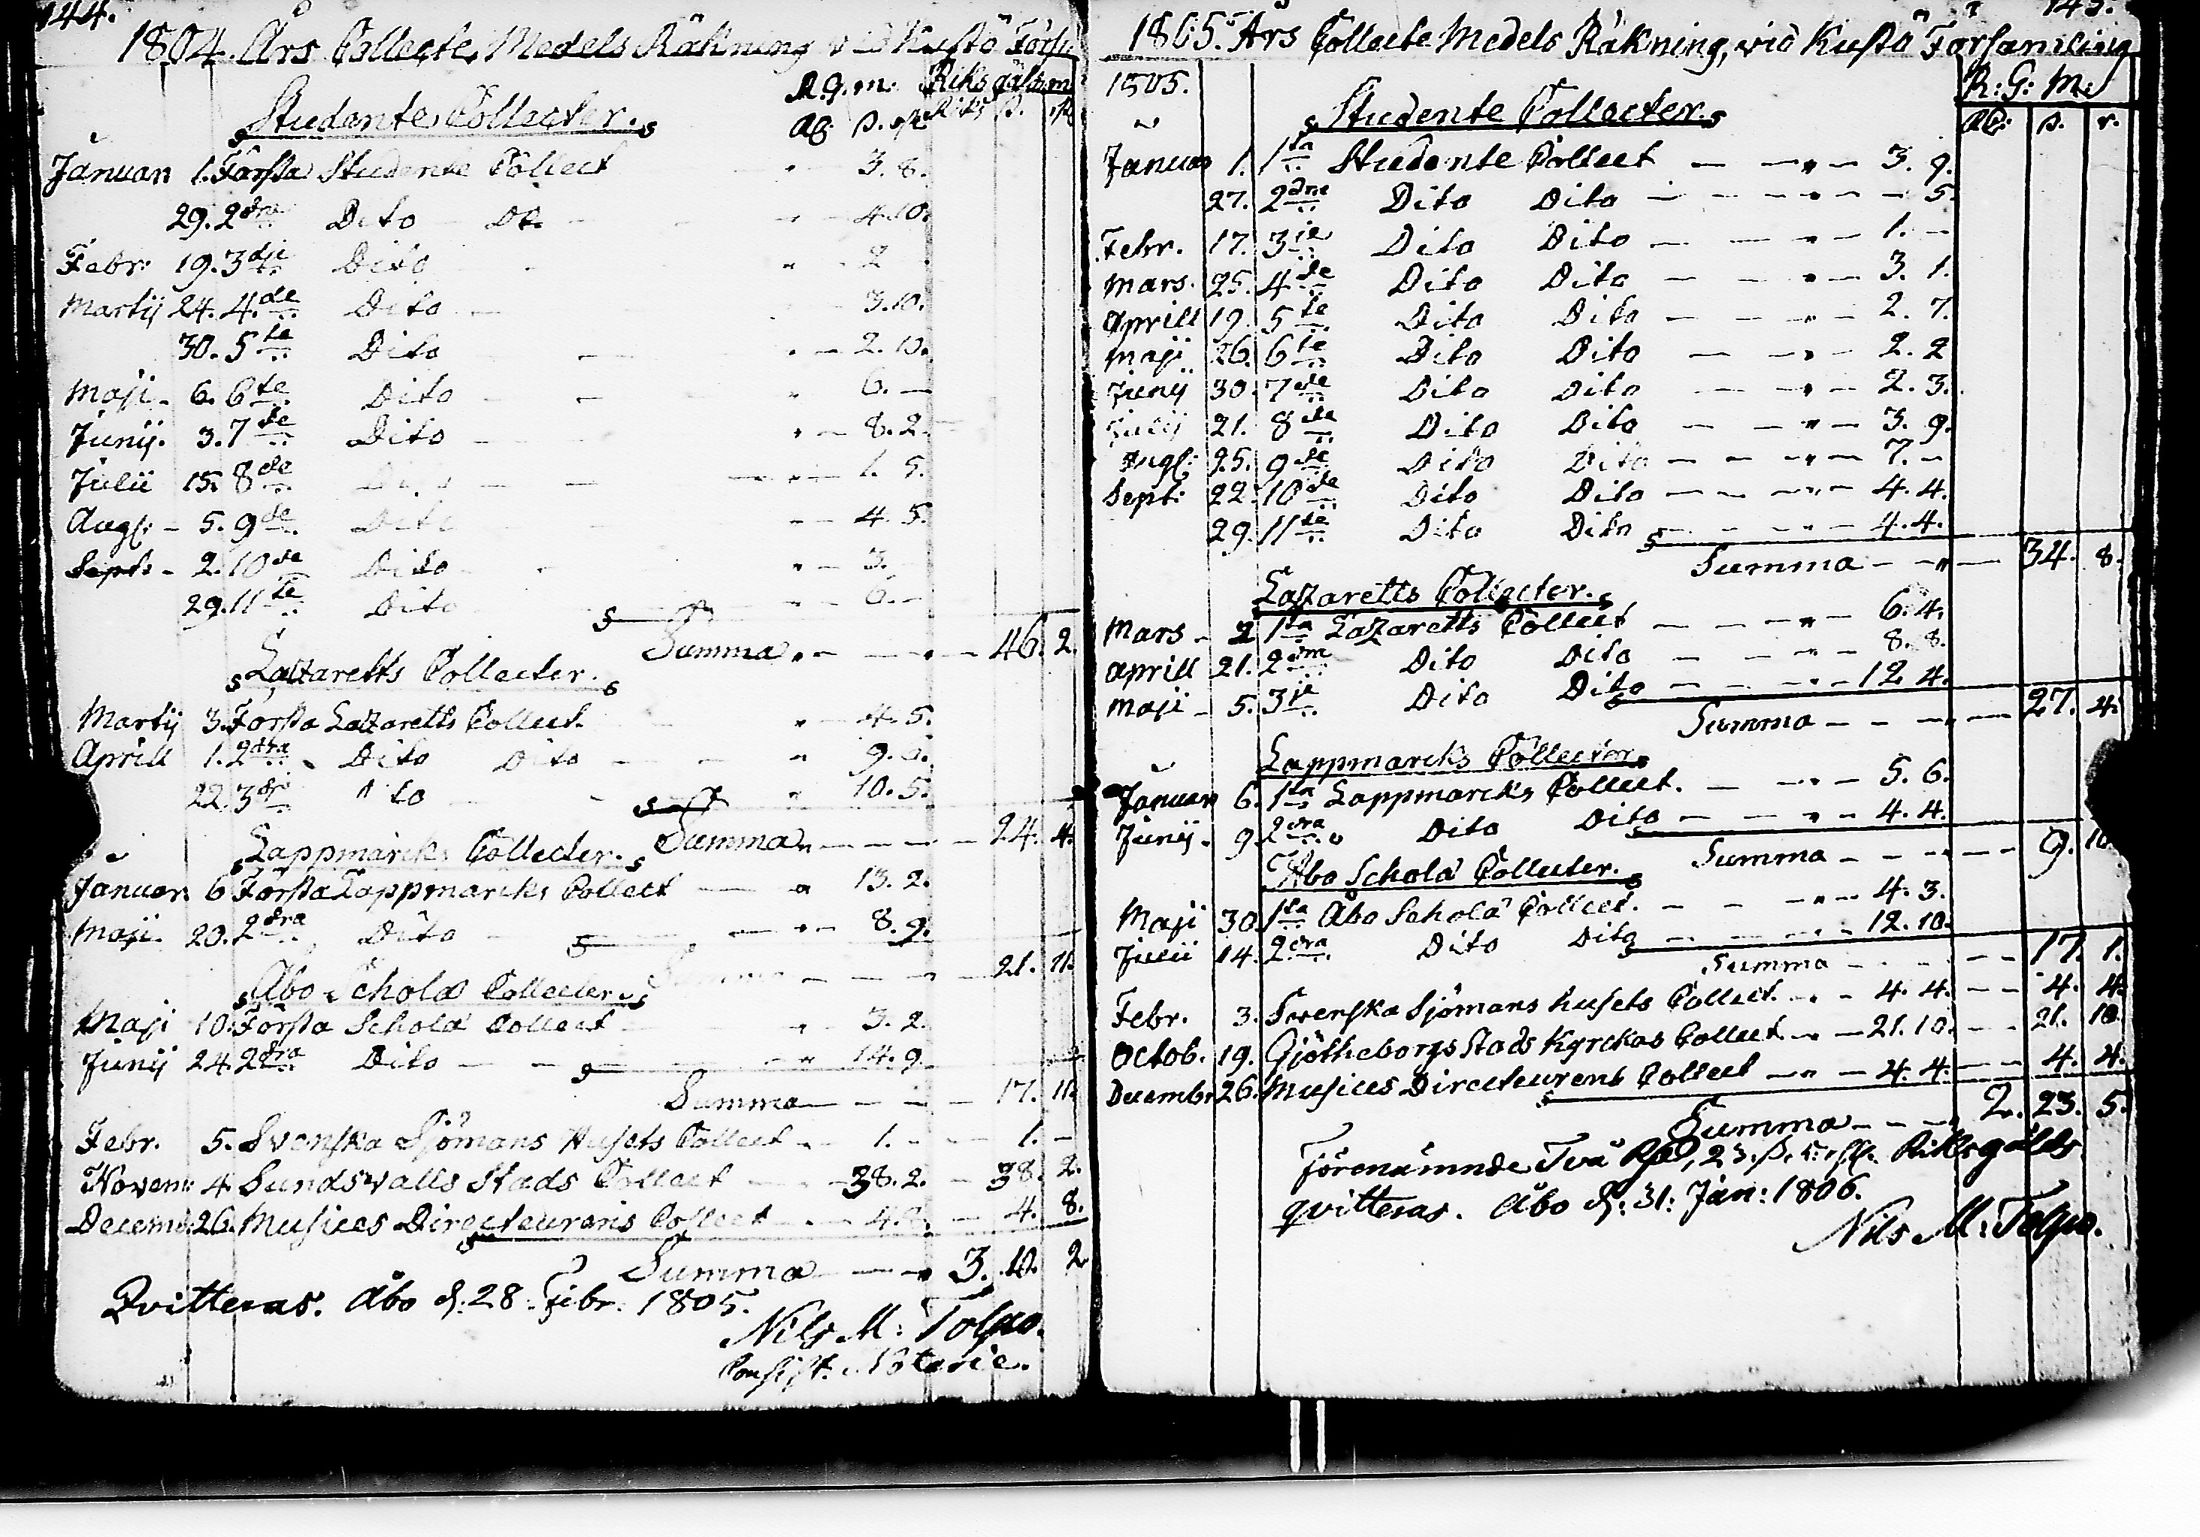 144.
1804. Års Collecte Medels Räkning vid Kustö Förs
R. g. m. Riksgälds m
Studente Collecter.
Rd. s. r. Riks s. r
Januari 1. Första Studente Collect " 3. 8.
29. 2dra Dito Do. " 4. 10.
Febr: 19. 3dje Dito " 2
Martij 24. 4de Dito 3. 10.
30. 5te Dito " 2. 10.
Maji 6. 6te Dito " 6. —
Junij. 3. 7de Dito " 8. 2.
Julii 15. 8de Dito " 1. 5.
Augs: 5. 9de Dito " 4. 5.
Sept: 2. 10de Dito " 3.
29. 11te Dito " 6. —
Summa " 46. 2.
Lazaretts Collecter.
Martij 3. Första Lazaretts Collect. " 4. 5.
Aprill 1. 2dra Dito Dito " 9.
22. 3dj Dito " 10. 5.
Summa " 24. 4.
Lappmarcks Collecter.
Januar. 6 Första Lappmarcks Collect " 13. 2.
Maji. 20. 2dra Dito " 8. 9.
Summa 21. 11.
Åbo Schola Collecter.
Maji 10. Första Schola Collect " 3. 2.
Junij 24. 2dra Dito " 14. 9.
Summa 17. 11.
Febr. 5. Svenska Sjömans Husets Collect 1. — 1. —
Novem: 4. Sundswalls Stads Collect 38. 2. 38. 2.
Decemb. 26. Musices Directeurens Collect 4. 8. 4. 8.
Summa " 3. 10. 2
Qvitteras. Åbo d: 28 Febr. 1805.
Nils M: Tolpo.
Consist. Notarie.
145.
1805. Års Collecte Medels Räkning, vid Kustö Församling
1805. R: G: M:
Studente Collecter. Rd: s. r.
Januar 1. 1ta Studente Collect " 3. 9.
27. 2dra Dito Dito " 5.
Febr. 17. 3je Dito Dito " 1. —
Mars. 25. 4de Dito Dito " 3. 1.
Aprill 19. 5te Dito Dito " 2. 7.
Maji 26. 6te Dito Dito " 2. 2
Junij 30. 7de Dito Dito " 2. 3.
Julij 21. 8de Dito Dito " 3. 9.
Augs: 25. 9de Dito Dito " 7. —
Sept: 22. 10de Dito Dito " 4. 4.
29. 11te Dito Dito " 4. 4.
Summa " 34. 8.
Lazaretts Collecter.
Mars 2 1ta Lazaretts Collect " 6. 4.
Aprill 21. 2dra Dito Dito " 8. 8.
Maji 5. 3je Dito Dito " 12. 4.
Summa 27. 4.
Lappmarcks Collecter.
Januari 6. 1ta Lappmarcks Collect. " 5. 6.
Junij 9. 2dra Dito Dito " 4. 4.
Summa 9. 10
Åbo Schola Collecter.
Maji 30. 1ta Åbo Schola Collect. " 4. 3.
Julii 14. 2dra Dito Dito 12. 10.
Summa 17. 1.
Febr. 3. Svenska Sjömans husets Collect. 4. 4. 4. 4.
Octob. 19. Gjötheborgs Stads Kyrckas Collect " 21. 10. 21. 10.
Decembr 26. Musices Directeurens Collect " 4. 4. 4. 4.
Summa 2. 23. 5.
Förenämnde Två Rd, 23. s. 5. r. Riksgälds
qvitteras. Åbo d: 31: Jan: 1806.
Nils M: Tolpo.